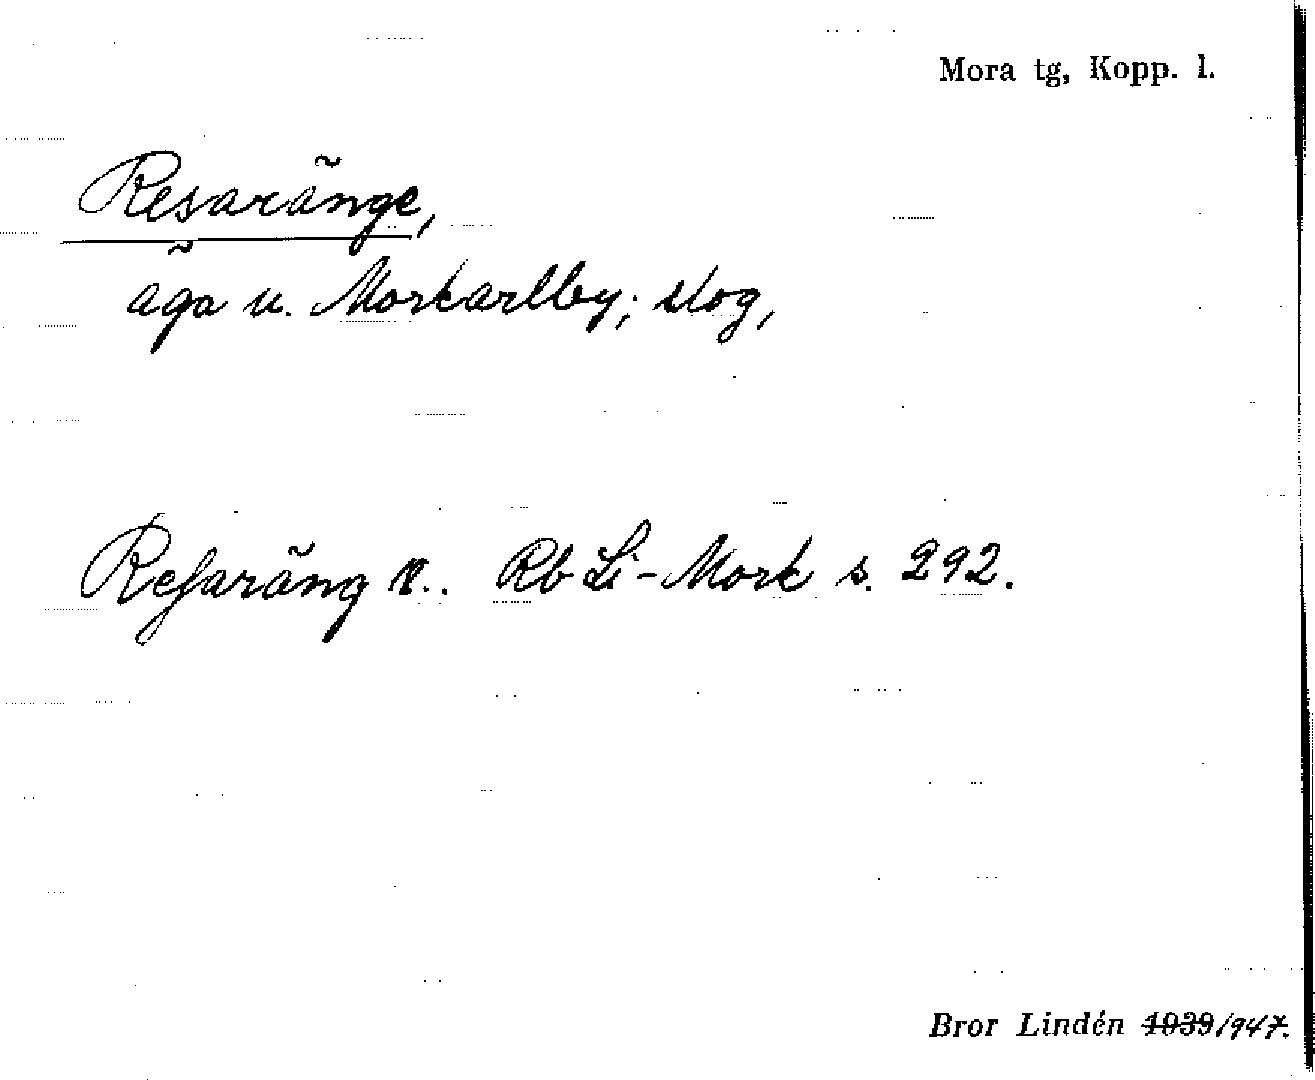 Mora tg, Kopp. l.
Resaränge,
äga u. Morkarlby; skog,
Resaräng n.. Rb Li-Mork s. 292.
Bror Lindén 1939/947.